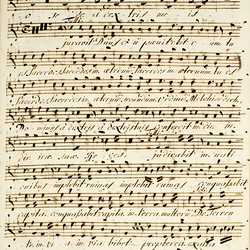 a dex tris me is
Juravit Dnus et non paenitebit e um tu
es Sacerdos Sacerdos in aeternum Sacerdos in aeternum. Tu es
Sacerdos, Sacerdos in aeternum, secundum ordinem Melchisedech.
Dominus a dextris a dextris tuis confregit in die
die irae suae Re ges. Judicabit in nati
onibus implebit ruinas implebit ruinas conquassabit
capita conquassabit capita in terra multorum. De torren
te in vi a in via bibet propterea exalta